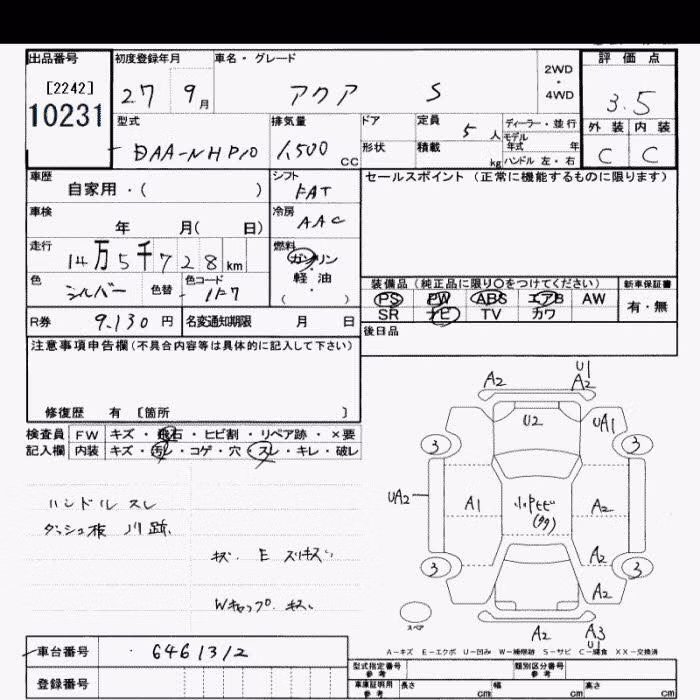 出品番号 初度登録年月 車名・グレード 2WD・4WD 評価点
[2242]
10231
27 9月 アクア S 3.5
型式 排気量 ドア 定員 5人 ディーラー・並行 外装 内装
モデル年式 年
DAA-NHP10 1,500cc 形状 積載 kg ハンドル 左・右 C C
車歴 シフト セールスポイント(正常に機能するものに限ります)
自家用・( ) FAT
車検 冷房
年 月( 日) AAC
走行 燃料
14万5千728km ガソリン・軽油( )
色 色替 色コード 装備品(純正品に限り○をつけてください) 新車保証書
シルバー 1F7 PS PW ABS エアB AW 有・無
R券 9,130円 名変通知期限 月 日 SR ナビ TV カワ
注意事項申告欄(不具合内容等は具体的に記入して下さい) 後日品
修復歴 有 [箇所 ]
検査員 FW キズ・飛石・ヒビ割・リペア跡・×要
記入欄 内装 キズ・汚レ・コゲ・穴・スレ・キレ・破レ
A2 U1 A2
U2 UA1
3 3
UA2 A1 A2
A2
3 3
A2
スペア
A2 A3 U1
ハンドル スレ
キズ E スリキズ
Wキャップ キズ
A-キズ E-エクボ U-凹み W-補修跡 S-サビ C-腐食 XX-交換済
車台番号 6461312
登録番号
型式指定番号 参考 類別区分番号 参考
車庫証明用 参考 長さ cm 幅 cm 高さ cm